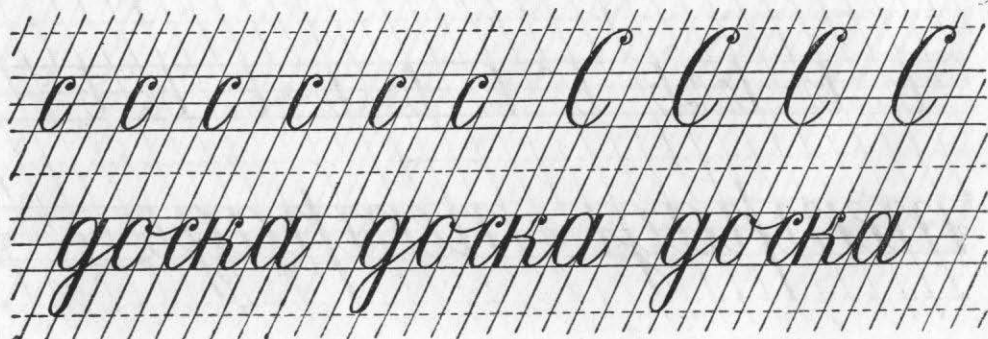 с с с с с с С С С С
доска доска доска